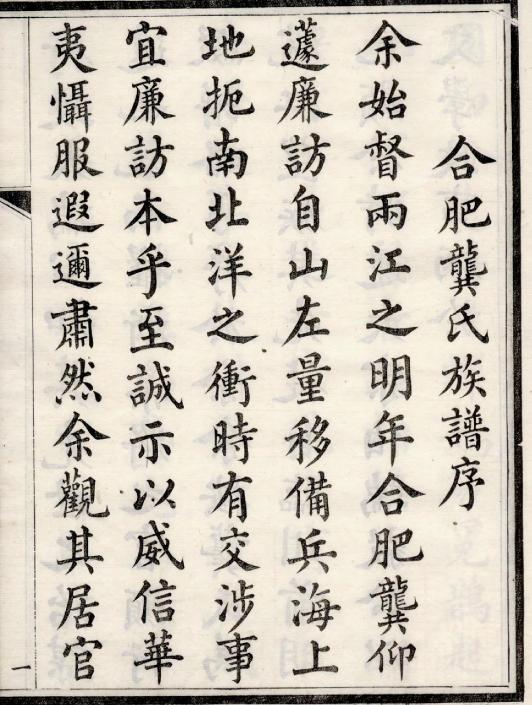 合肥龔氏族譜序
余始督兩江之明年合肥龔仰
蘧廉訪自山左量移備兵海上
地扼南北洋之衝時有交涉事
宜廉訪本乎至誠示以威信華
夷懾服遐邇肅然余觀其居官
一